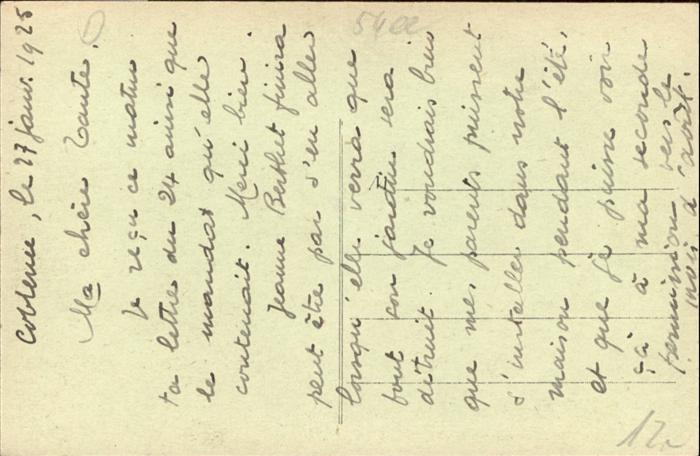 Coblence, le 27 janv. 1925
Ma chère Tante.
Je reçu ce matin
ta lettre du 24 ainsi que
le mandat qu'elle
contenait. Merci bien.
Jeanne Berthet finira
peut être par s'en aller
lorsqu'elle verra que
tout son jardin sera
détruit. Je voudrais bien
que mes parents puissent
s'installer dans notre
maison pendant l'été,
et que je puisse voir
çà à ma seconde
permission vers le
mois d'août.
54
12